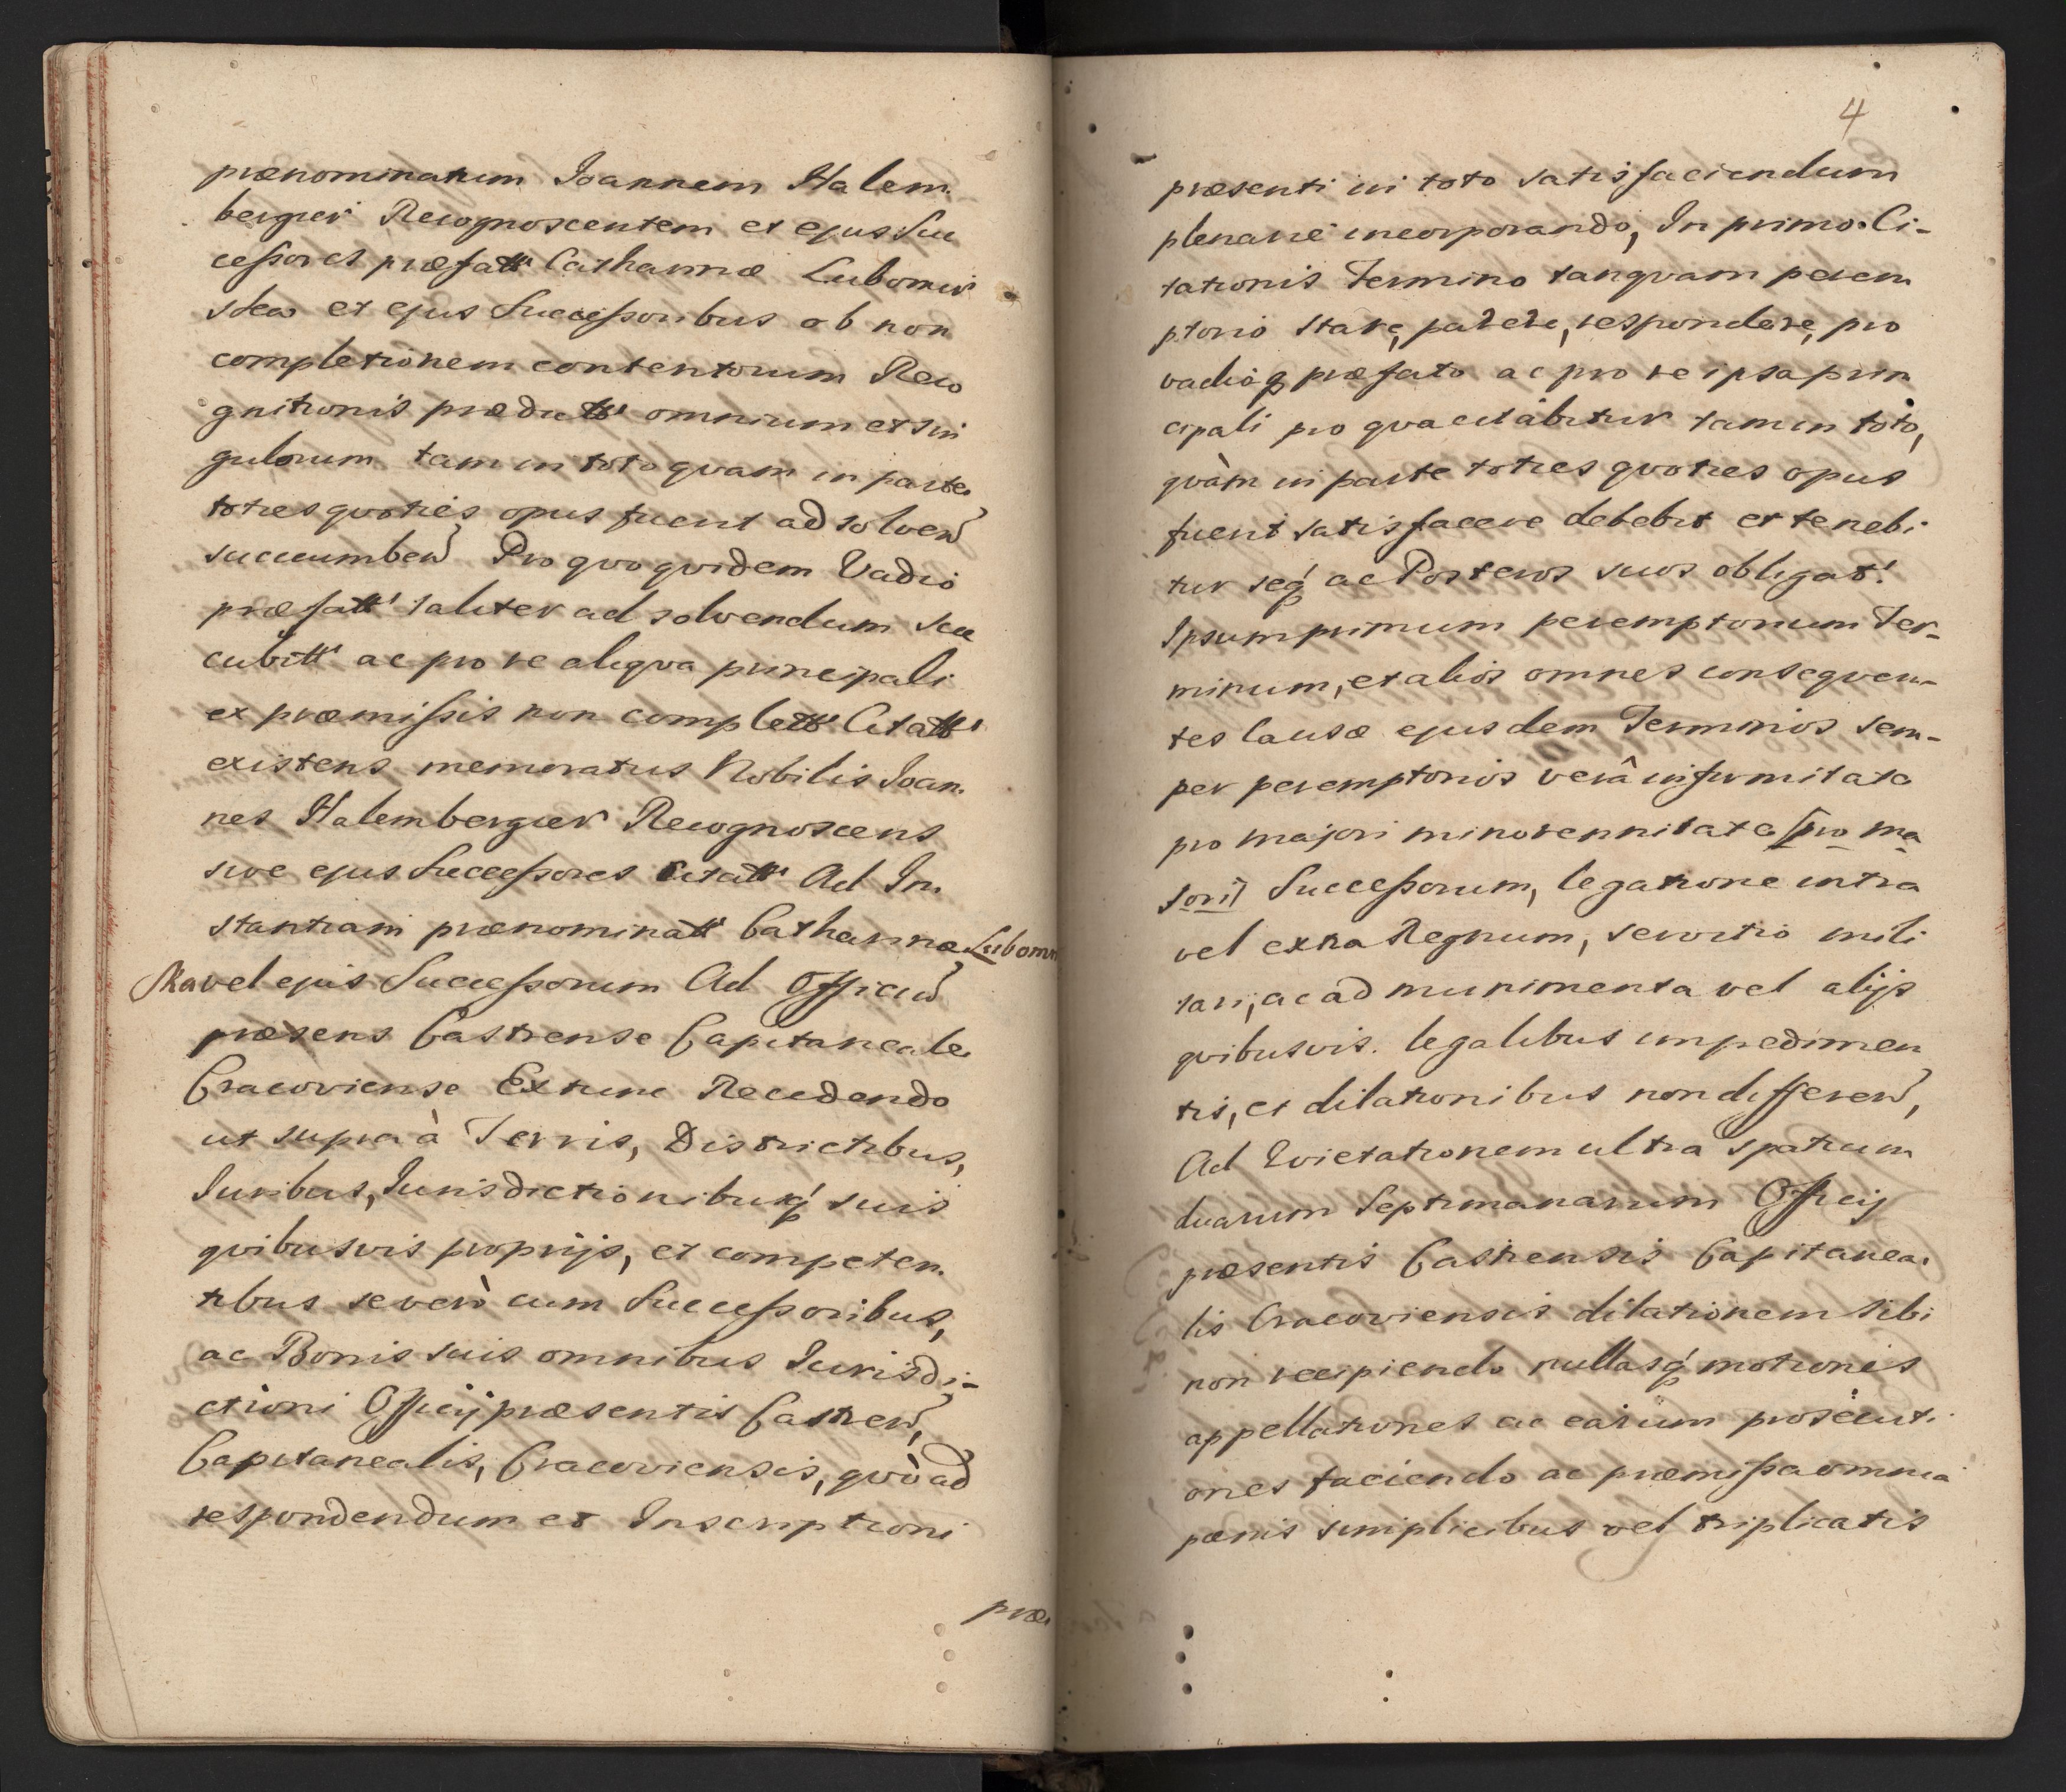 prænominatum Joannem Halem
bergier Recognoscentem et ejus Suc
cessores præfatt' Catharinæ Lubomir
skia et ejus Successoribus ob non
completionem contentorum Reco
gnitionis prædictt' omnium et sin
gulorum tam in toto quam in parte
toties quoties opus fuerit ad solven
succumben Pro quo quidem Vadio
præfatt' taliter ad solvendum suc
cubitt' ac pro re aliqua principali
ex præmissis non complett' Citatt'
existens memoratus Nobilis Joan
nes Halembergier Recognoscens
sive ejus Successores Citatt' Ad In
stantiam prænominatt' Catharinæ Lubomir
ska vel ejus Successorum Ad Officiu
præsens Castrense Capitaneale
Cracoviense Extunc Recedendo
ut supra à Terris, Districtibus,
Juribus, Jurisdictionibusq suis
quibusvis proprijs, et competen
tibus se verò cum Successoribus,
ac Bonis suis omnibus Jurisdi-
ctioni Officij præsentis Castren,
Capitanealis, Cracoviensis, quò ad
respondendum et Inscriptioni
præ
4
præsenti in toto satisfaciendum
plenarie incorporando, In primo Ci-
tationis Termino tanquam perem
ptorio stare, parere, respondere, pro
vadioq præfato ac pro re ipsa prin
cipali pro qua citabitur tam in toto,
quàm in parte toties quoties opus
fuerit satisfacere debebit et tenebi
tur seq ac Posteros suos obligat.
Ipsum primum peremptorium Ter-
minum, et alios omnes consequen-
tes Causæ ejusdem Terminos sem-
per peremptorios verâ infirmitate
pro majori minorennitate [pro ma
jori] Successorum, legatione intra
vel extra Regnum, servitio mili
tari, ac ad munimenta vel alijs
quibusvis legalibus impedimen
tis, et dilationibus non differen,
Ad Evictationem ultra spatium
duarum Septimanarum Officij
præsentis Castrensis Capitanea
lis Cracoviensis dilationem sibi
non recipiendo nullasq motiones
appellationes ac earum prosecuti
ones faciendo ac præmissa omnia
pænis simplicibus vel triplicatis